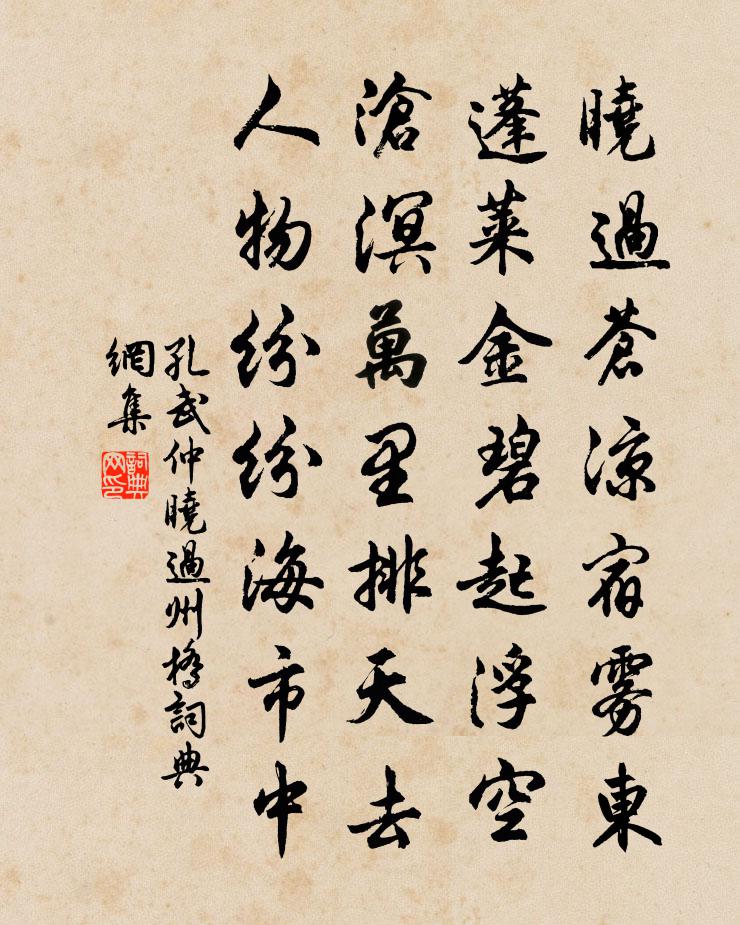 曉過蒼涼宿雾東
蓬萊金碧起浮空
滄溟萬里排天去
人物紛紛海市中
孔武仲曉過州橋詞典
網集
詞典
网印